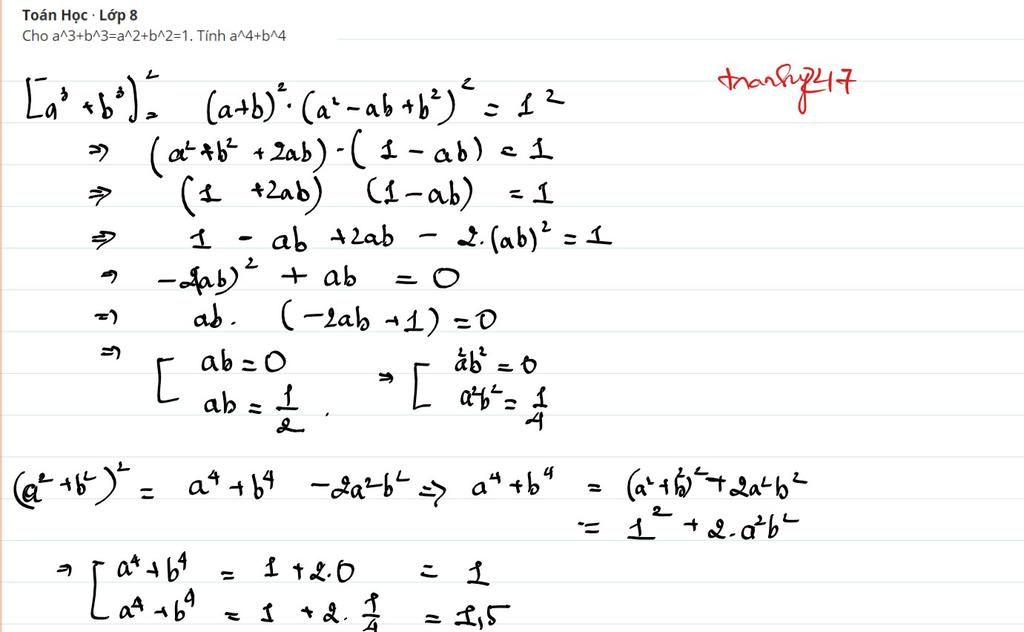 Toán Học · Lớp 8
Cho a^3+b^3=a^2+b^2=1. Tính a^4+b^4
[a³ + b³]² = (a+b)² · (a² - ab + b²)² = 1²
⇒ (a² + b² + 2ab) · (1 - ab) = 1
⇒ (1 + 2ab) (1 - ab) = 1
⇒ 1 - ab + 2ab - 2.(ab)² = 1
⇒ -2(ab)² + ab = 0
⇒ ab. (-2ab + 1) = 0
⇒ [ ab = 0 ⇒ [ a²b² = 0
ab = 1/2 . a²b² = 1/4
(a² + b²)² = a⁴ + b⁴ - 2a²b² ⇒ a⁴ + b⁴ = (a² + b²)² + 2a²b²
= 1² + 2.a²b²
⇒ [ a⁴ + b⁴ = 1 + 2.0 = 1
a⁴ + b⁴ = 1 + 2. 1/4 = 1,5